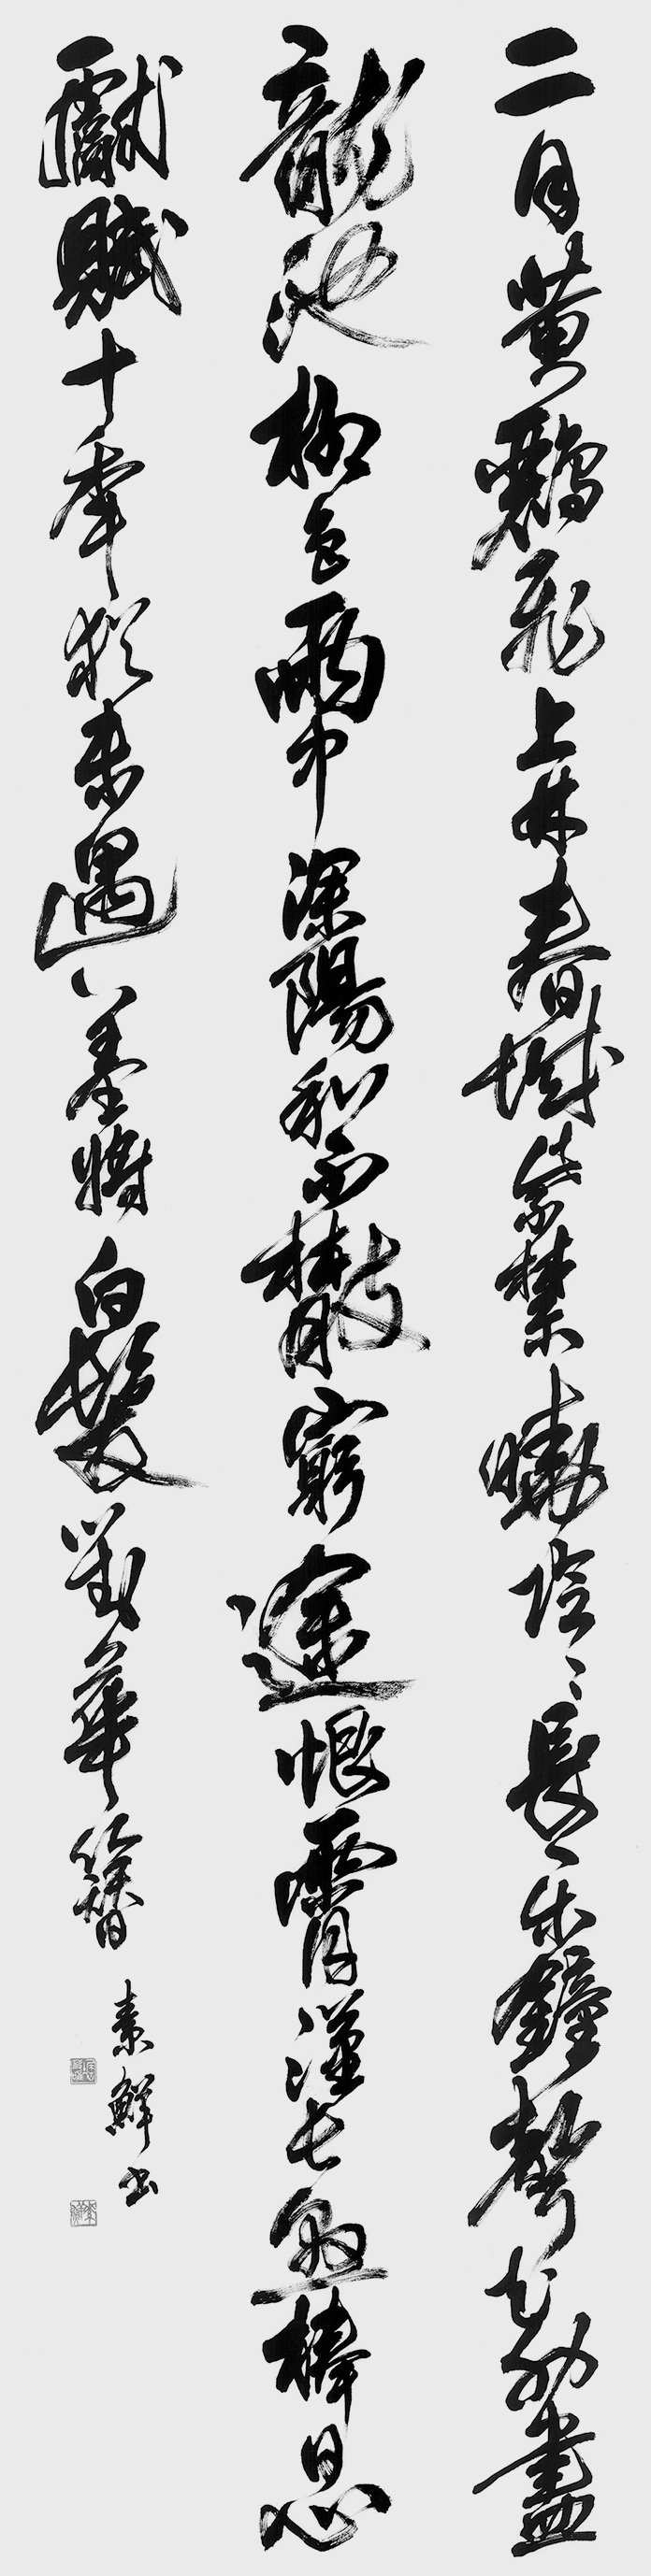 二月黄鸝飛上林春城紫禁曉陰〻長樂鐘聲花外盡
龍池柳色雨中深陽和不散窮途恨霄漢長懸捧日心
獻賦十年猶未遇羞將白髮對華簪
素鮮書